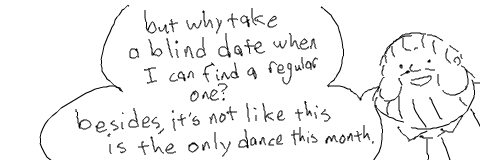 but why take
a blind date when
I can find a regular
one?
besides, it's not like this
is the only dance this month.